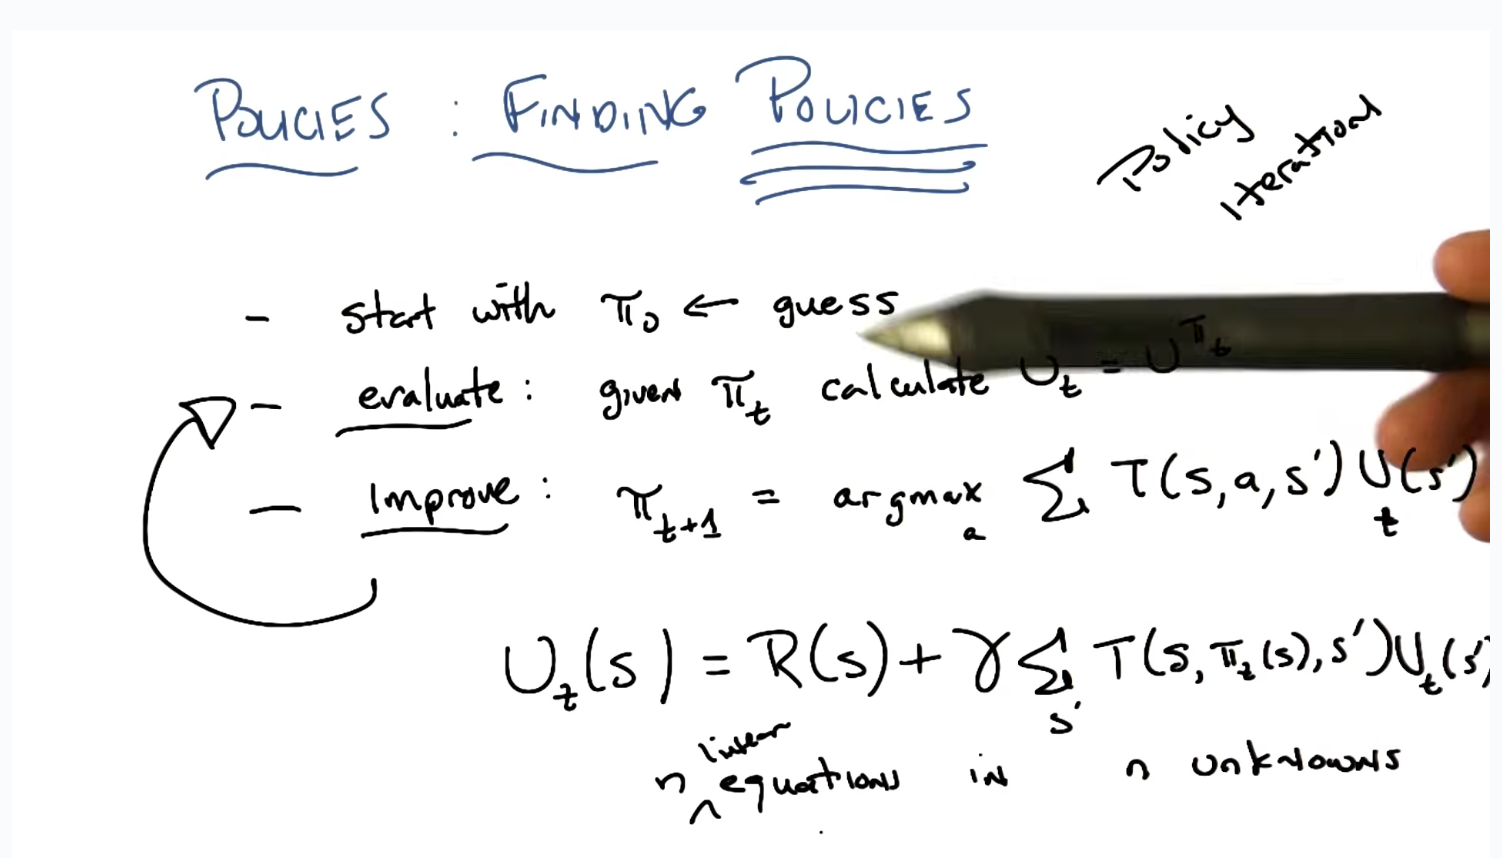 POLICIES : FINDING POLICIES
Policy
Iteration
- start with π₀ ← guess
- evaluate : given π_t calculate U_t = U^{π_t}
- Improve : π_{t+1} = argmax_a Σ T(s,a,s') U_t(s')
U_t(s) = R(s) + γ Σ_{s'} T(s, π_t(s), s') U_t(s')
n linear equations in n unknowns